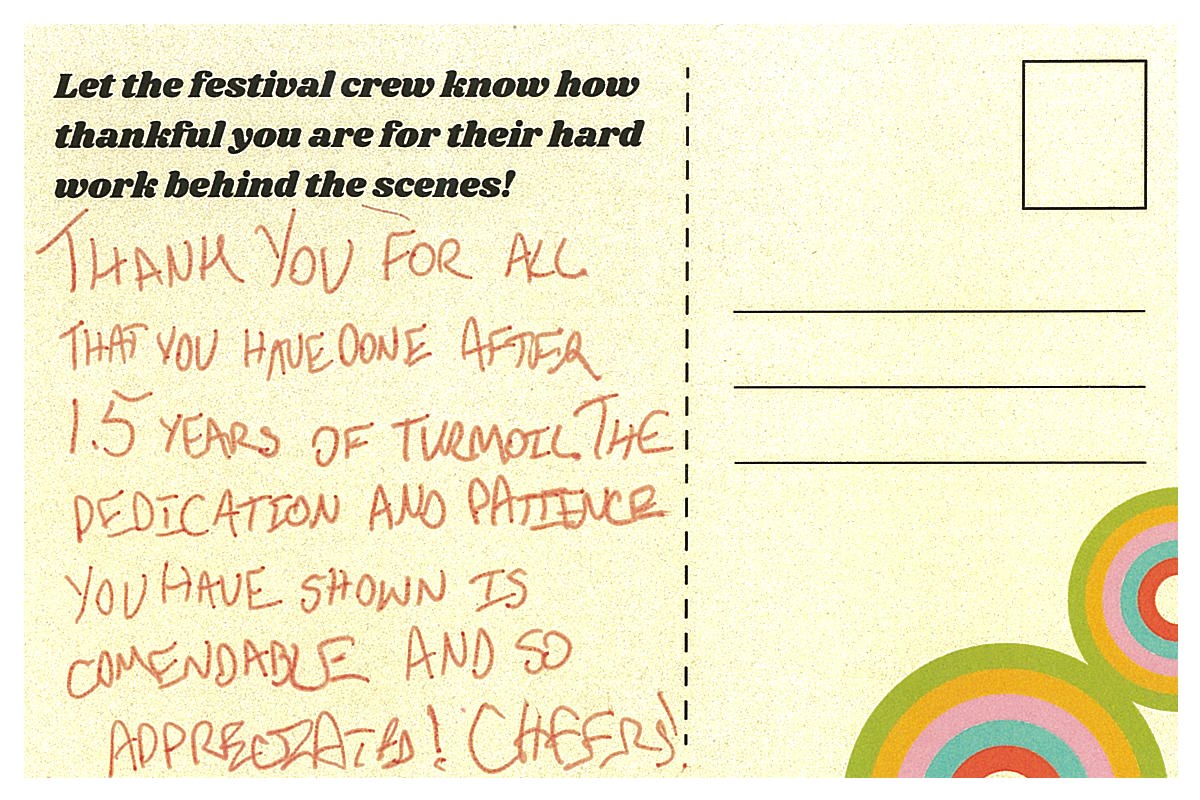 Let the festival crew know how
thankful you are for their hard
work behind the scenes!
THANK YOU FOR ALL
THAT YOU HAVE DONE AFTER
1.5 YEARS OF TURMOIL THE
DEDICATION AND PATIENCE
YOU HAVE SHOWN IS
COMENDABLE AND SO
APPRECIATED! CHEERS!